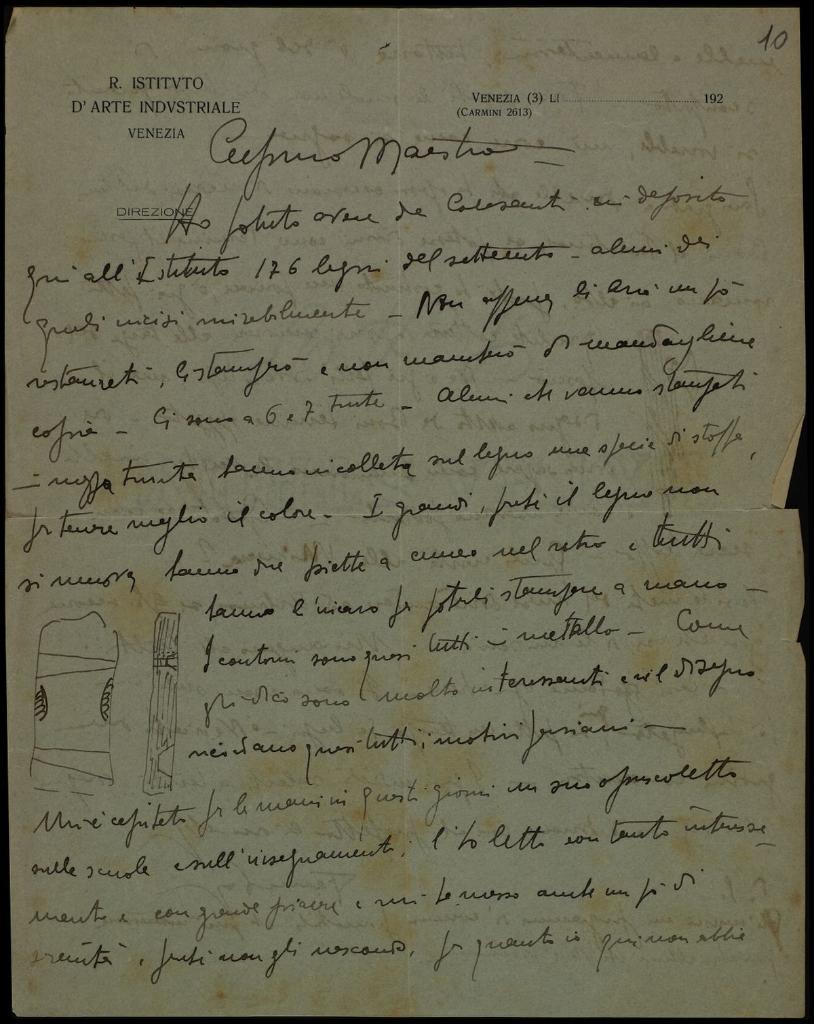 10
R. ISTITVTO
D'ARTE INDVSTRIALE
VENEZIA
VENEZIA (3) LI 192
(CARMINI 2613)
Maestro
DIREZIONE
Ho potuto avere da Colasanti in deposito
qui all'Istituto 176 legni del settecento - alcuni dei
quali incisi mirabilmente - Non appena li avrò un pò
restaurati, li stamperò e non mancherò di mandargliene
copia - Ci sono a 6 e 7 tinte - Alcuni che vanno stampati
in mezza tinta hanno incollata sul legno una specie di stoffa,
per tenere meglio il colore - I grandi, perchè il legno non
si muova, hanno due piette a cuneo nel retro e tutti
hanno l'incavo per poterli stampare a mano -
I contorni sono quasi tutti in metallo - Come
gli dico sono molto interessanti e nel disegno
ricordano quasi tutti i motivi persiani -
Mi è capitato fra le mani in questi giorni un suo opuscoletto
sulle scuole e sull'insegnamento, l'ho letto con tanto interessa-
mento e con grande piacere e mi ha messo anche un pò di
serenità, perchè non gli nascondo, per quanto io qui non abbia